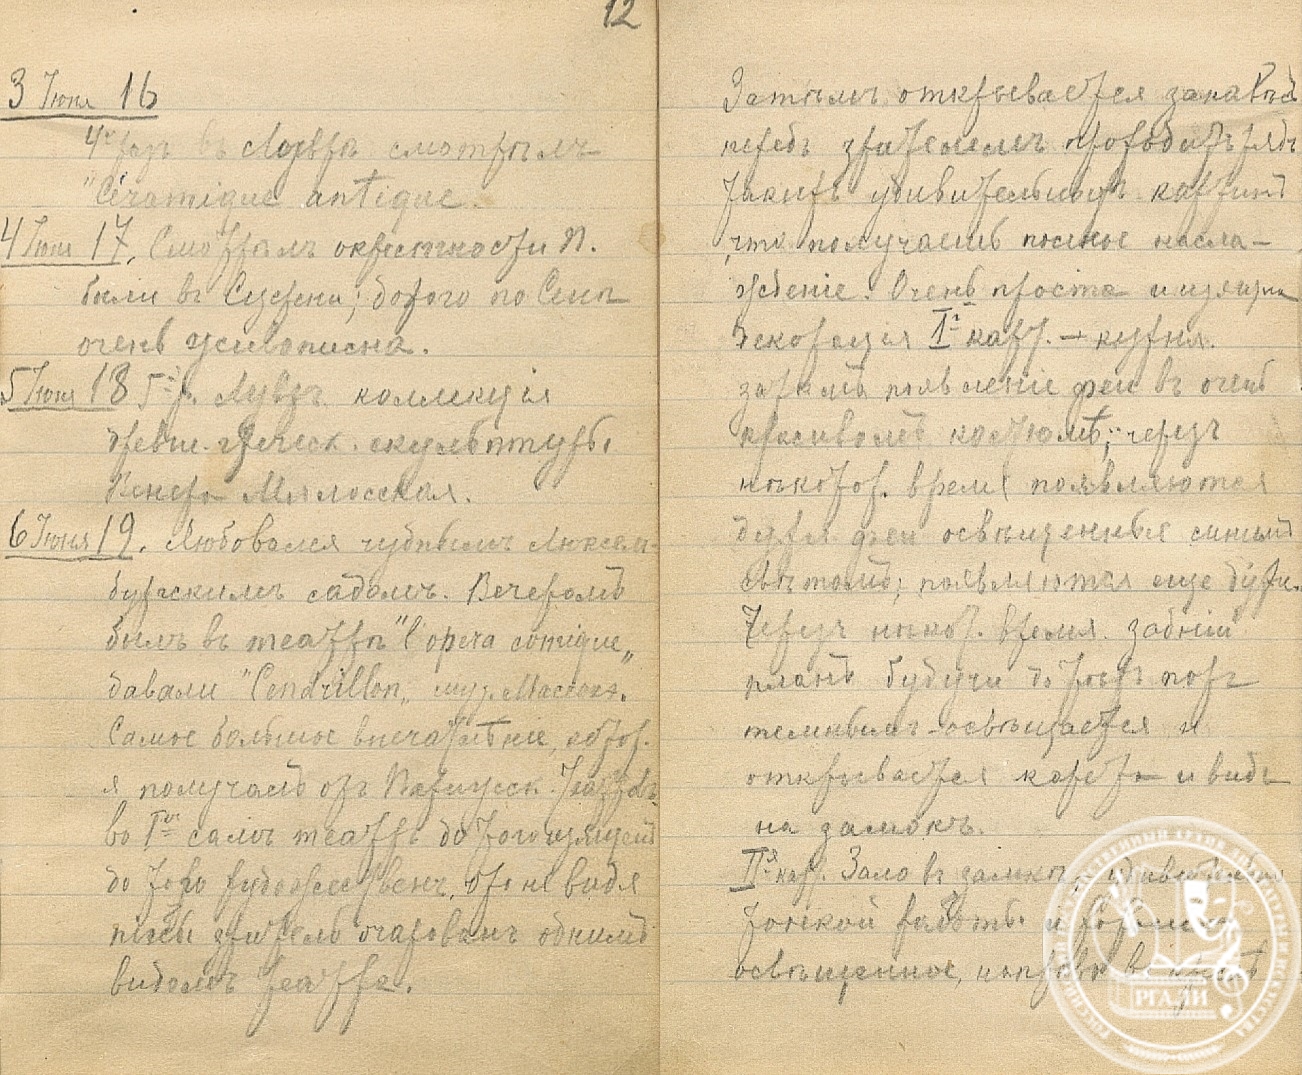 12
3 Іюня 16
4й разъ въ Луврѣ смотрѣлъ
"Céramique antique.
4 Іюня 17. Смотрѣлъ окрестности П.
были въ Сюрени; дорога по Сенѣ
очень живописна.
5 Іюня 18 5й р. Лувръ коллекція
древн. греческ. скульптуры
Венера Милосская.
6 Іюня 19. Любовался чуднымъ Люксем-
бургскимъ садомъ. Вечеромъ
былъ въ театрѣ "l'opera comique„
давали "Cendrillon„ муз. Массенэ.
Самое большое впечатлѣніе, котор.
я получалъ отъ Парижск. театровъ
во Iхъ самъ театръ до того изященъ
до того художественъ, что не видя
пьесы зритель очарованъ однимъ
видомъ театра.
Затѣмъ открывается занавѣсъ
передъ зрителемъ проходитъ рядъ
такихъ удивительныхъ картинъ
что получаешь полное насла-
жденіе. Очень проста и изящна
декорація Iя карт. — кухня.
затѣмъ появленіе феи въ очень
красивомъ костюмѣ; черезъ
нѣкотор. время появляются
другія феи освѣщенныя синимъ
свѣтомъ; появляются еще други.
Черезъ нѣкот. время задній
планъ будучи до сихъ поръ
темнымъ освѣщается и
открывается карета и видъ
на замокъ.
IIя карт. Зало въ замкѣ, удивительно
тонкой работы и хорошо
освѣщенное,
РГАЛИ